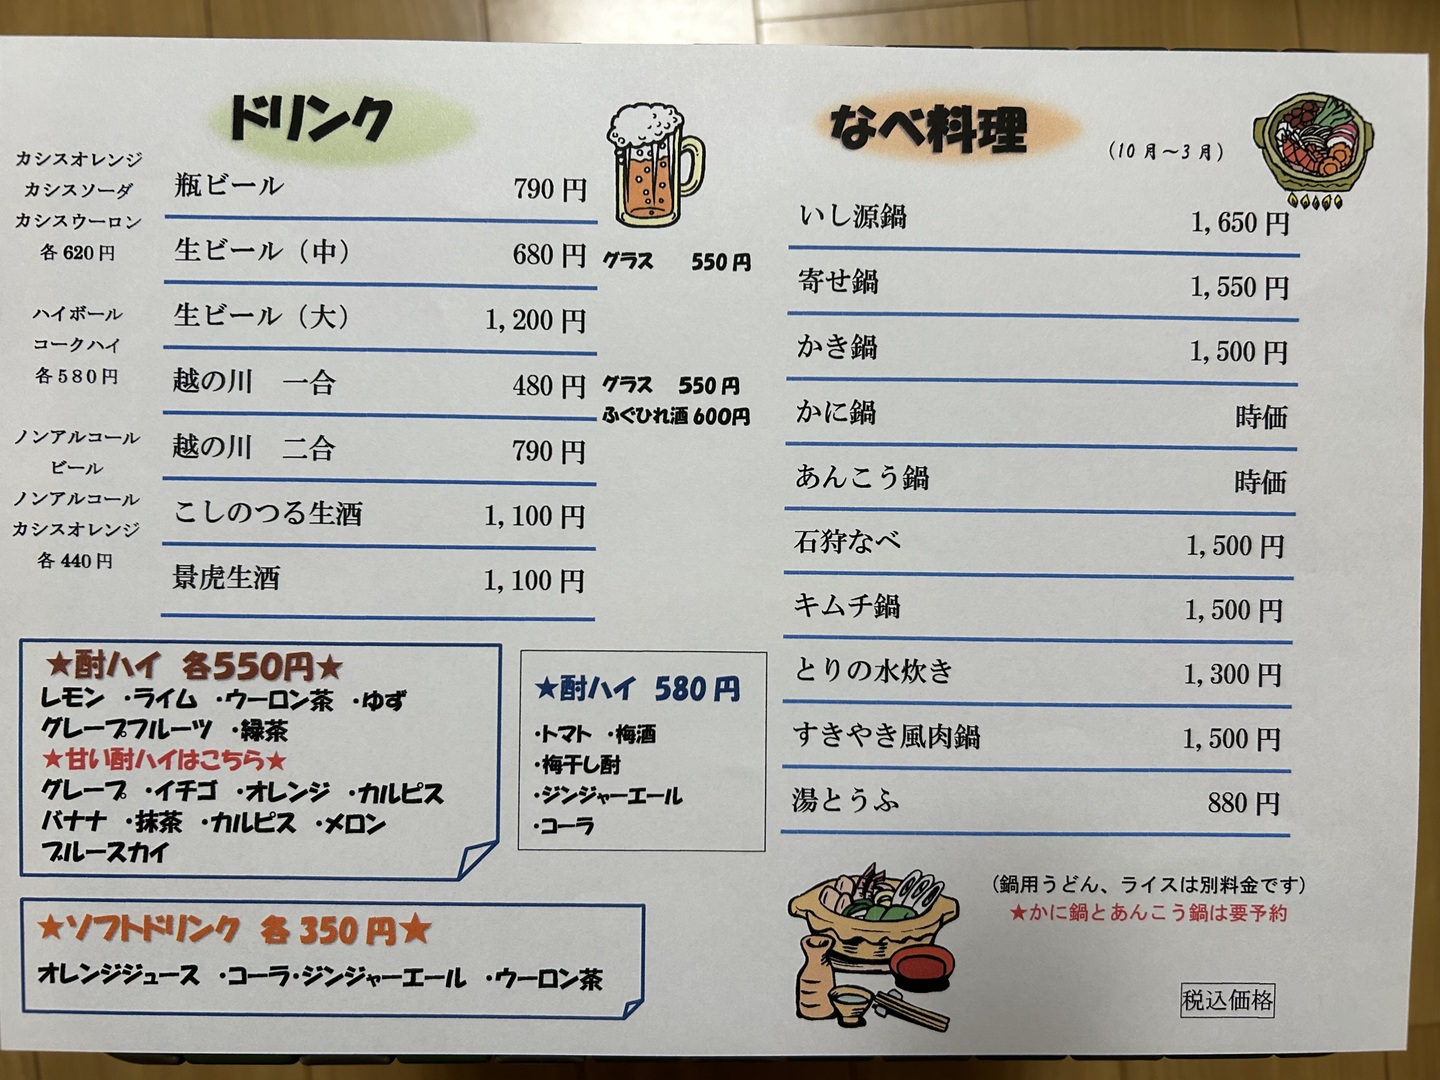 ドリンク
カシスオレンジ
カシスソーダ
カシスウーロン
各620円
ハイボール
コークハイ
各５８０円
ノンアルコール
ビール
ノンアルコール
カシスオレンジ
各440円
瓶ビール 790円
生ビール（中） 680円
グラス 550円
生ビール（大） 1,200円
越の川 一合 480円
グラス 550円
ふぐひれ酒600円
越の川 二合 790円
こしのつる生酒 1,100円
景虎生酒 1,100円
★酎ハイ 各550円★
レモン ・ライム ・ウーロン茶 ・ゆず
グレープフルーツ ・緑茶
★甘い酎ハイはこちら★
グレープ ・イチゴ ・オレンジ ・カルピス
バナナ ・抹茶 ・カルピス ・メロン
ブルースカイ
★酎ハイ 580円
・トマト ・梅酒
・梅干し酎
・ジンジャーエール
・コーラ
★ソフトドリンク 各350円★
オレンジジュース ・コーラ・ジンジャーエール ・ウーロン茶
なべ料理
（10月～3月）
いし源鍋 1,650円
寄せ鍋 1,550円
かき鍋 1,500円
かに鍋 時価
あんこう鍋 時価
石狩なべ 1,500円
キムチ鍋 1,500円
とりの水炊き 1,300円
すきやき風肉鍋 1,500円
湯とうふ 880円
（鍋用うどん、ライスは別料金です）
★かに鍋とあんこう鍋は要予約
税込価格